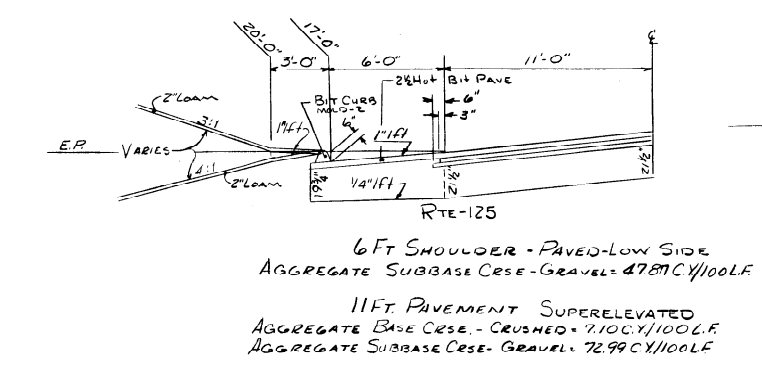 20'-0" 17'-0" ℄
3'-0" 6'-0" 11'-0"
2½ Hot Bit Pave
2" Loam
Bit Curb
Mold-2
6"
3"
6"
3:1
1"/ft
1"/ft
E.P. Varies
4:1
2" Loam
19¾"
1/4"/ft
21½"
21½"
Rte-125
6 Ft Shoulder - Paved-Low Side
Aggregate Subbase Crse-Gravel= C.Y./100 L.F.
11 Ft. Pavement Superelevated
Aggregate Base Crse.- Crushed= 7.10 C.Y./100 L.F.
Aggregate Subbase Crse- Gravel= 72.99 C.Y./100 L.F.